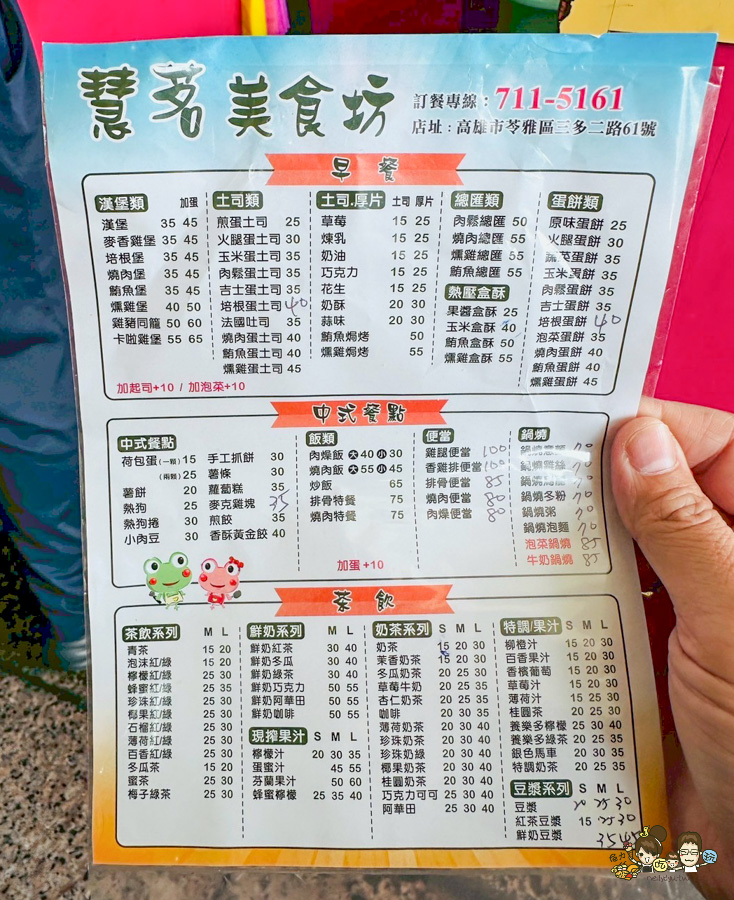 慧茗 美食坊
訂餐專線：711-5161
店址：高雄市苓雅區三多二路61號
早餐
漢堡類 加蛋
漢堡 35 45
麥香雞堡 35 45
培根堡 35 45
燒肉堡 35 45
鮪魚堡 35 45
燻雞堡 40 50
雞豬同籠 50 60
卡啦雞堡 55 65
加起司+10 / 加泡菜+10
土司類
煎蛋土司 25
火腿蛋土司 30
玉米蛋土司 35
肉鬆蛋土司 35
吉士蛋土司 35
培根蛋土司 40
法國吐司 35
燒肉蛋土司 40
鮪魚蛋土司 40
燻雞蛋土司 45
土司.厚片 土司 厚片
草莓 15 25
煉乳 15 25
奶油 15 25
巧克力 15 25
花生 15 25
奶酥 20 30
蒜味 20 30
鮪魚焗烤 50
燻雞焗烤 55
總匯類
肉鬆總匯 50
燒肉總匯 55
燻雞總匯 55
鮪魚總匯 55
熱壓盒酥
果醬盒酥 25
玉米盒酥 40
鮪魚盒酥 50
燻雞盒酥 55
蛋餅類
原味蛋餅 25
火腿蛋餅 30
蔬菜蛋餅 35
玉米蛋餅 35
肉鬆蛋餅 35
吉士蛋餅 35
培根蛋餅 40
泡菜蛋餅 35
燒肉蛋餅 40
鮪魚蛋餅 40
燻雞蛋餅 45
中式餐點
中式餐點
荷包蛋(一顆)15
(兩顆)25
薯餅 20
熱狗 25
熱狗捲 30
小肉豆 30
手工抓餅 30
薯條 30
蘿蔔糕 35
麥克雞塊 35
煎餃 35
香酥黃金餃 40
飯類
肉燥飯 大40 小30
燒肉飯 大55 小45
炒飯 65
排骨特餐 75
燒肉特餐 75
加蛋+10
便當
雞腿便當 100
香雞排便當 100
排骨便當 85
燒肉便當 80
肉燥便當 80
鍋燒
鍋燒意麵 70
鍋燒雞絲 70
鍋燒烏龍 70
鍋燒冬粉 70
鍋燒粥 70
鍋燒泡麵 70
泡菜鍋燒 85
牛奶鍋燒 85
茶飲
茶飲系列 M L
青茶 15 20
泡沫紅/綠 15 20
檸檬紅/綠 25 30
蜂蜜紅/綠 25 35
珍珠紅/綠 25 30
椰果紅/綠 25 30
石榴紅/綠 25 30
薄荷紅/綠 25 30
百香紅/綠 25 30
冬瓜茶 15 20
蜜茶 25 30
梅子綠茶 25 30
鮮奶系列 M L
鮮奶紅茶 30 40
鮮奶冬瓜 30 40
鮮奶綠茶 30 40
鮮奶巧克力 50 55
鮮奶阿華田 50 55
鮮奶咖啡 50 55
現搾果汁 S M L
檸檬汁 20 30 35
蛋蜜汁 45 55
芬蘭果汁 50 60
蜂蜜檸檬 25 35 40
奶茶系列 S M L
奶茶 15 20 30
茉香奶茶 15 20 30
冬瓜奶茶 20 25 30
草莓牛奶 20 25 35
杏仁奶茶 20 25 35
咖啡 20 30 35
薄荷奶茶 20 30 40
珍珠奶茶 20 30 40
珍珠奶綠 20 30 40
椰果奶茶 20 30 40
桂圓奶茶 20 30 40
巧克力可可 25 30 40
阿華田 25 30 40
特調/果汁 S M L
柳橙汁 15 20 30
百香果汁 15 20 30
香檳葡萄 15 20 30
草莓汁 15 20 30
薄荷汁 15 25 30
桂圓茶 20 25 30
養樂多檸檬 25 30 40
養樂多綠茶 20 25 35
銀色馬車 20 30 35
特調奶茶 20 25 35
豆漿系列 S M L
豆漿 20 25 30
紅茶豆漿 15 25 30
鮮奶豆漿 35 45